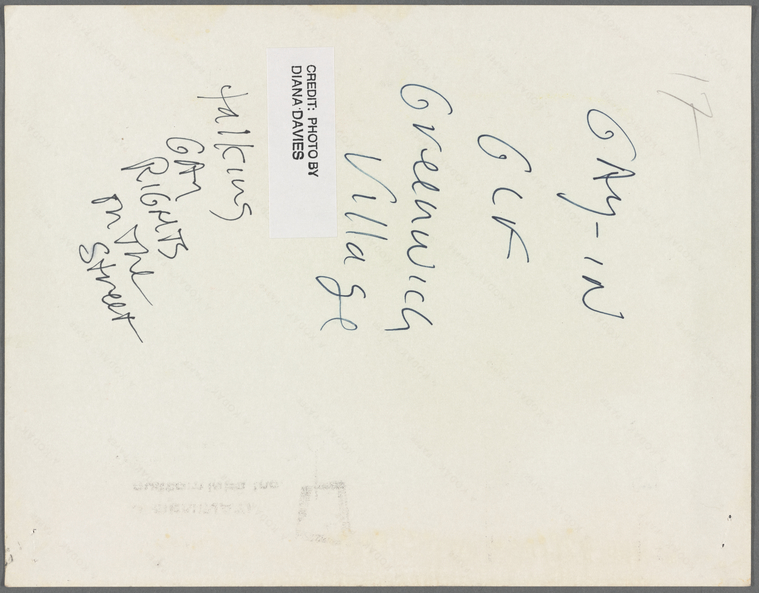 17
GAY-IN
GLF
Greenwich
Village
CREDIT: PHOTO BY
DIANA DAVIES
talking
GAY
RIGHTS
on the
street